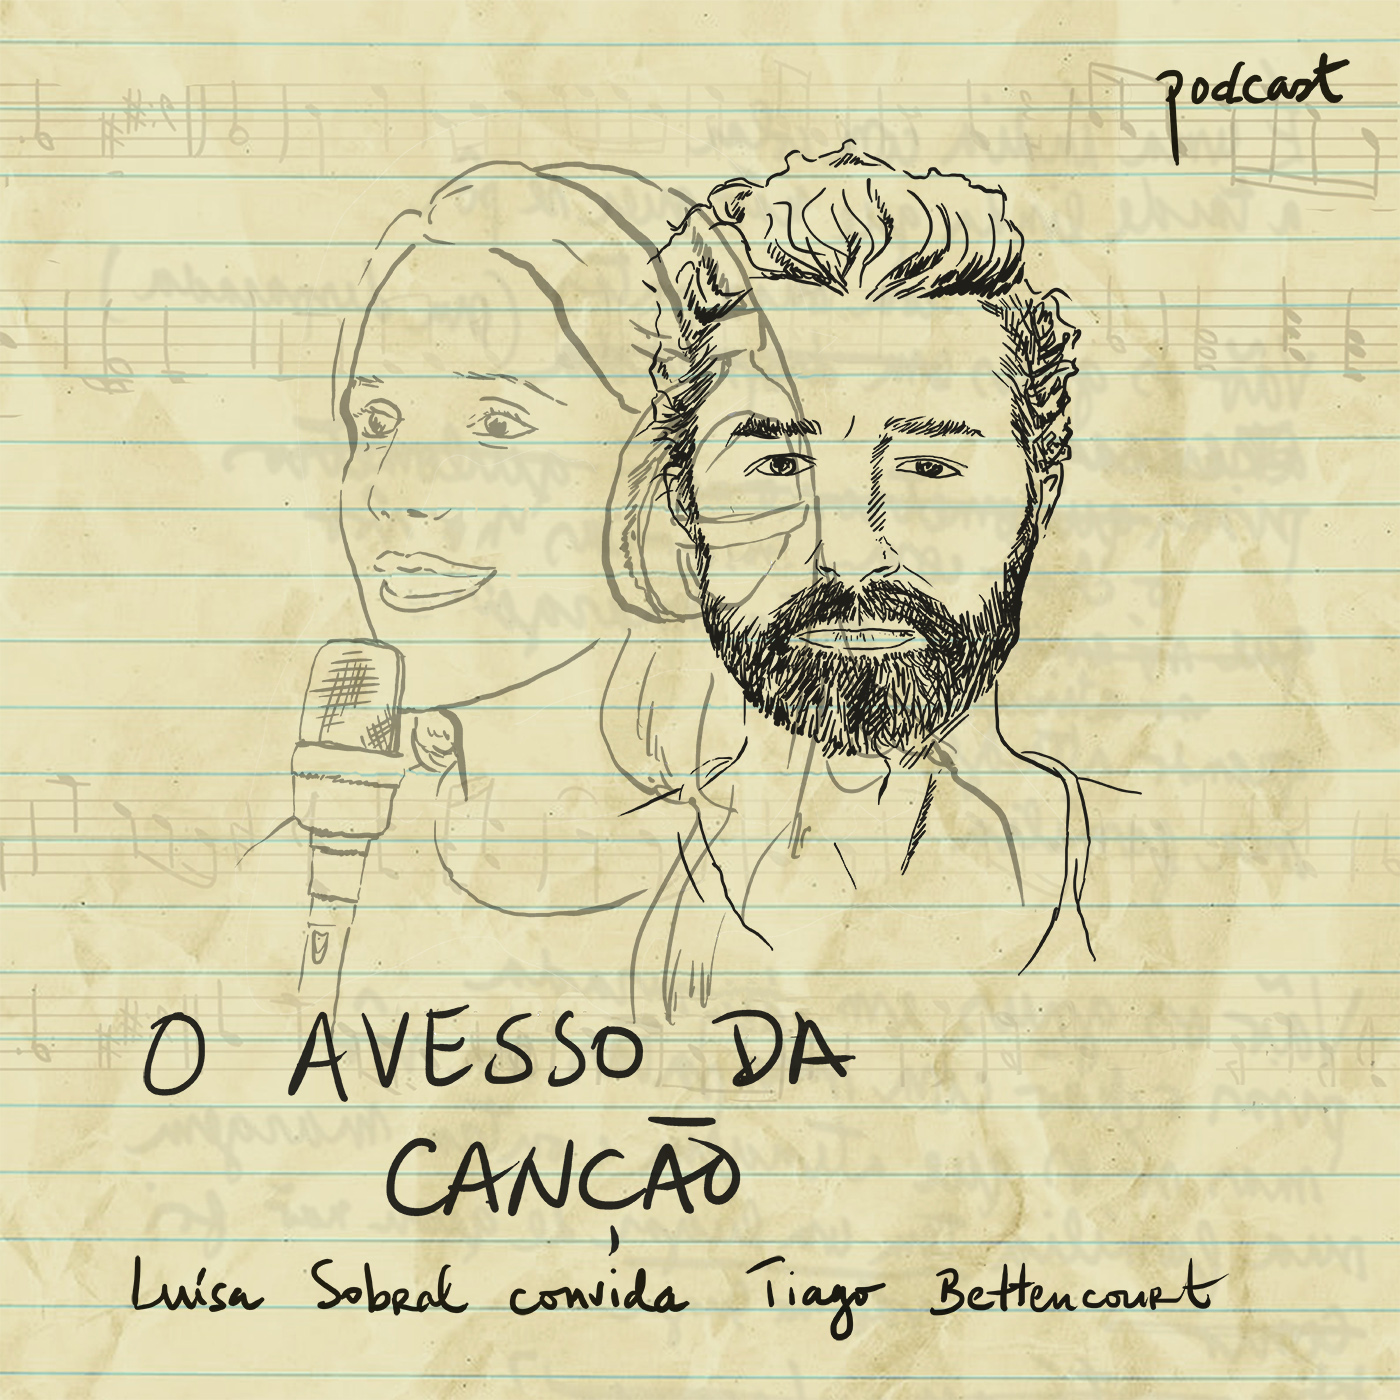 podcast
O AVESSO DA
CANÇÃO
Luísa Sobral convida Tiago Bettencourt